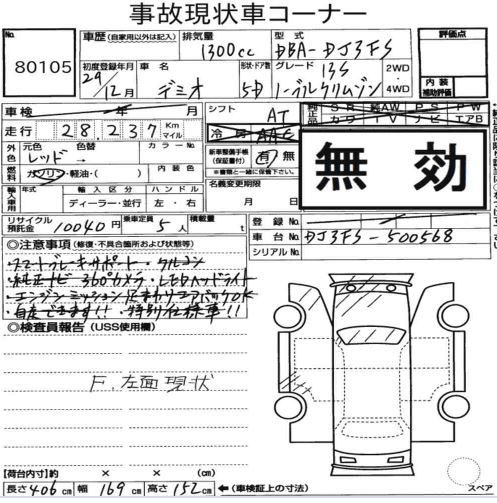 事故現状車コーナー
No. 80105
車歴 (自家用以外は記入) 排気量 1300cc 型式 DBA-DJ3FS 評価点
初度登録年月 29年/12月 車名 デミオ 形状・ドア数 5D グレード 13S ノーブルクリムゾン 2WD・4WD 内装補助評価
車検 年 月 シフト AT 純正品 SR 続AW PS PW
走行 28,237 Km マイル 冷房 AAC カワ TV ナビ エアB
外色 元色 色替 カラーNo. レッド 内装色 新車整備手帳(保証書付) 有・無
燃料 ガソリン・軽油・( ) ※書類と一緒に保管下さい。
輸入車用 年式 輸入区分 ハンドル 名義変更期限
年 ディーラー・並行 左・右 月 日
無効
リサイクル預託金 10040円 乗車定員 5人 積載量 t
登録No.
車台No. DJ3FS-500568
シリアルNo.
◎注意事項 (修復・不具合箇所および状態等)
・スマートブレーキサポート・クルコン
・純正ナビ 360°カメラ・LEDヘッドライト
・エンジン ミッション 足まわり エアバックOK
・自走できます!! 特別仕様車!!
◎検査員報告 (USS使用欄)
F.左面現状
【荷台内寸】約 × × (cm)
長さ 406cm 幅 169cm 高さ 152cm ←(車検証上の寸法)
スペア